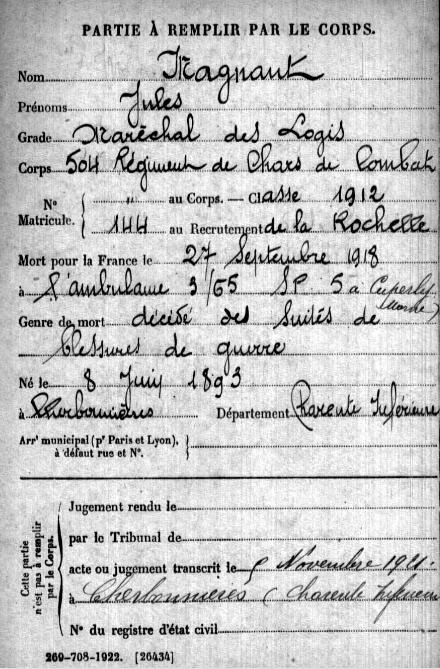 PARTIE À REMPLIR PAR LE CORPS.
Nom Magnant
Prénoms Jules
Grade Maréchal des Logis
Corps 504 Régiment de Chars de Combat
N° Matricule. { " au Corps. — Classe 1912
144 au Recrutement de la Rochelle
Mort pour la France le 27 Septembre 1918
à l'ambulance 3/65 SP. 5 à Cuperly (Marne)
Genre de mort décédé des Suites de
blessures de guerre
Né le 8 Juin 1893
à Cherbonnières Département Charente Inférieure
Arr' municipal (p' Paris et Lyon), à défaut rue et N°. }
Cette partie n'est pas à remplir par le Corps.
Jugement rendu le
par le Tribunal de
acte ou jugement transcrit le 5 Novembre 1921.
à Cherbonnières (Charente Inférieure
N° du registre d'état civil
269-708-1922. [26434]